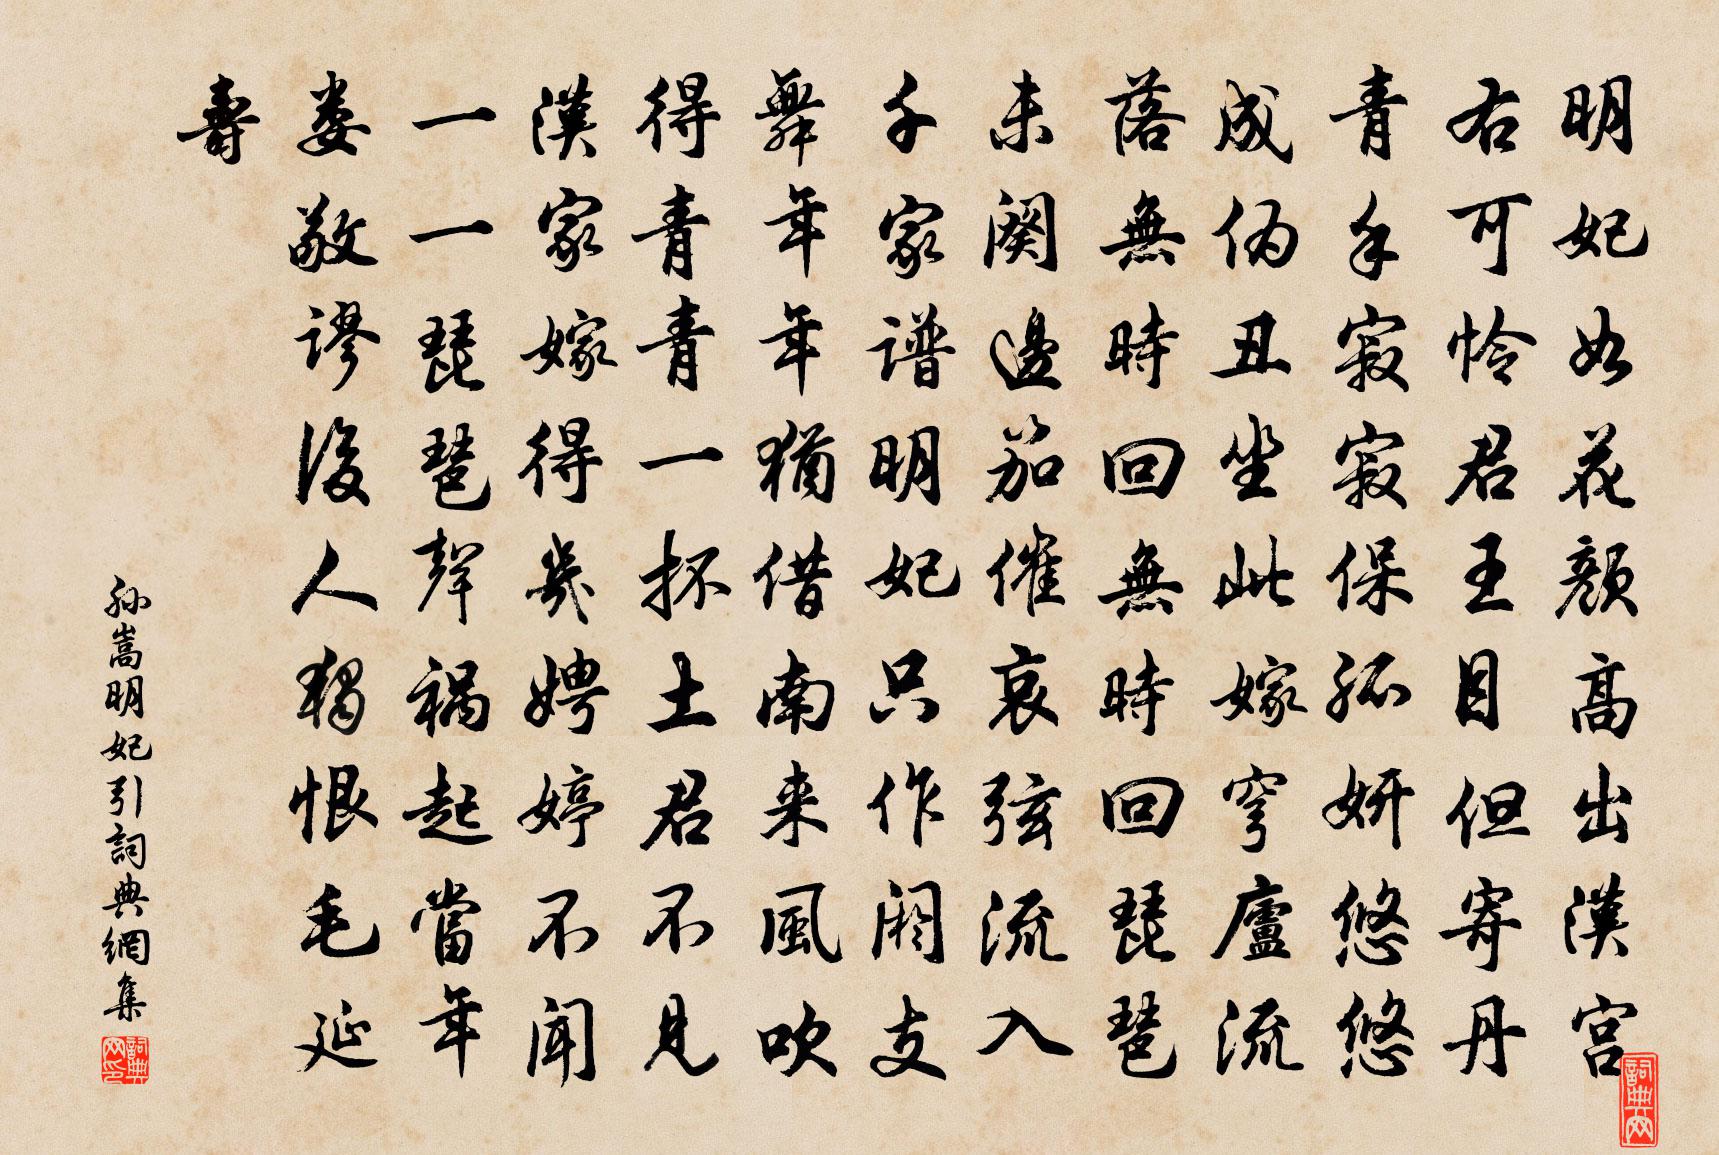 明妃如花顏高出漢宮
右可怜君王目但寄丹
青手寂寂保孤妍悠悠
成伪丑坐此嫁穹廬流
落無時回無時回琵琶
未阕邊笳催哀弦流入
千家谱明妃只作阏支
舞年年猶借南来風吹
得青青一抔土君不見
漢家嫁得幾娉婷不聞
一一琵琶聲祸起當年
娄敬谬後人獨恨毛延
壽
孙嵩明妃引詞典網集
詞典网印
詞典网